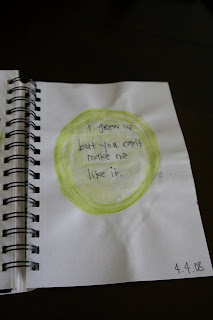 I grew up
but you can't
make me
like it.
4.4.08